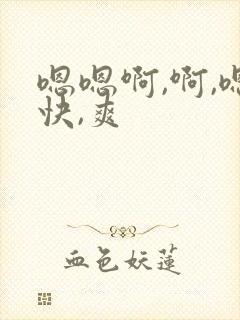 嗯嗯啊,啊,嗯
快,爽
血色妖莲